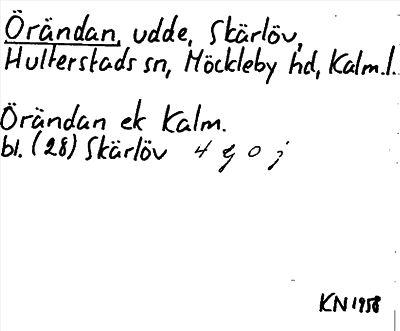 Örändan, udde, Skärlöv,
Hulterstads sn, Möckleby hd, Kalm.l.
Örändan ek Kalm.
bl. (28) Skärlöv 4 g 0 j
KN 1958